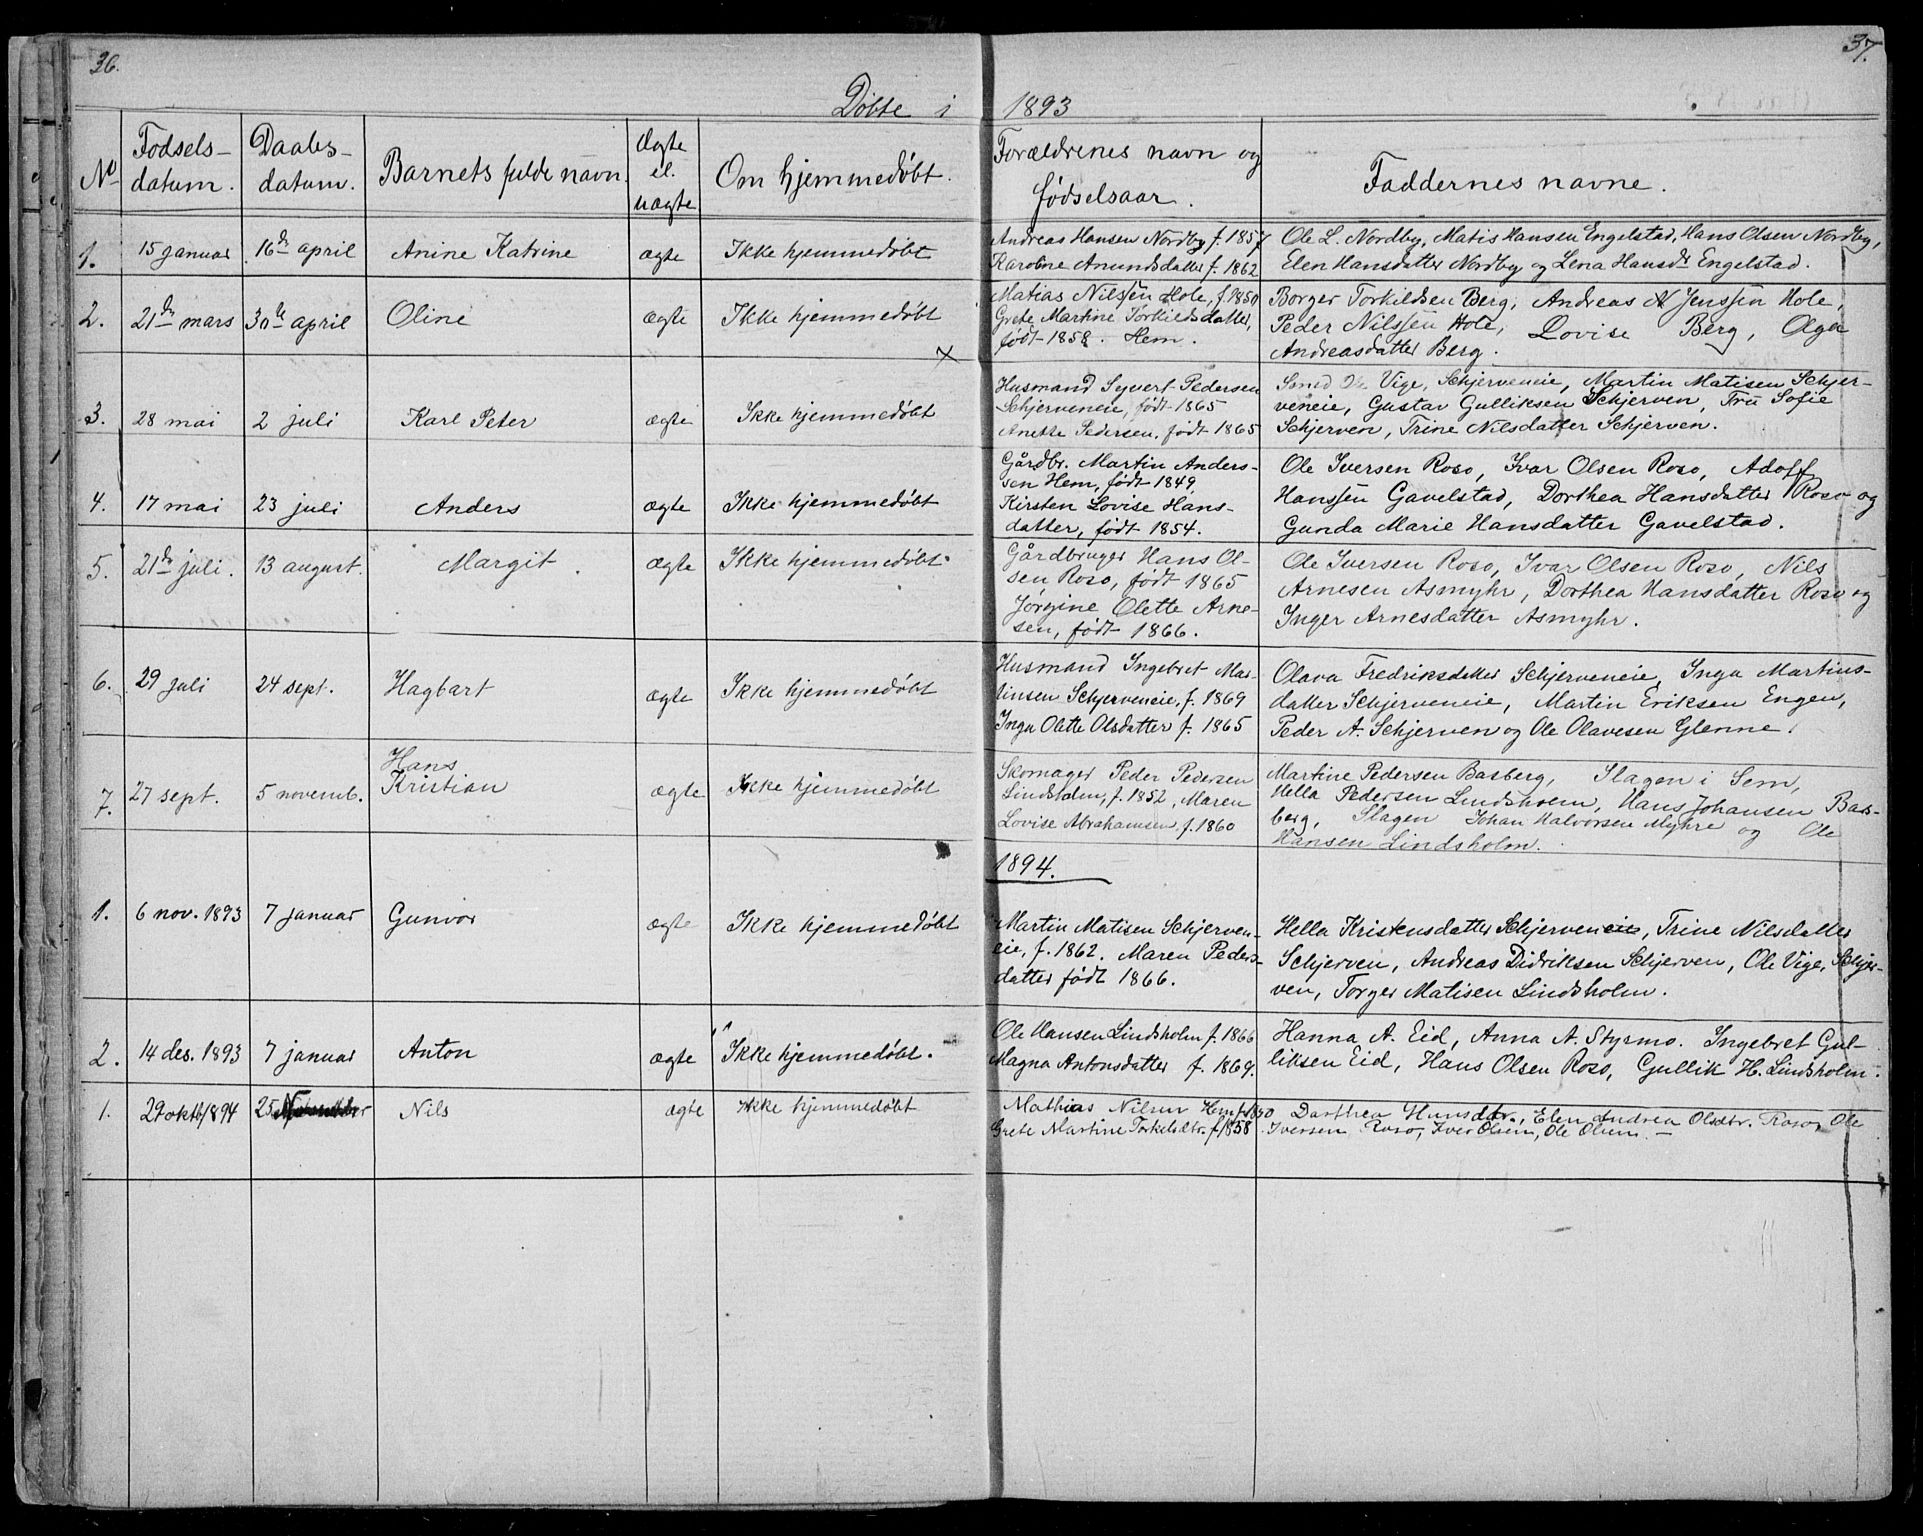 36.
37.
Døbte i 1893
No
Fødsels-
datum.
Daabs-
datum.
Barnets fulde navn.
Ægte
el.
uægte
Om hjemmedøbt.
Forældrenes navn og
fødselsaar.
Faddernes navne.
1. 15 januar 16de april Anine Katrine ægte Ikke hjemmedøbt
Andreas Hansen Nordby f. 1857
Karoline Amundsdatter f. 1862
Ole L. Nordby, Matis Hansen Engelstad, Hans Olsen Nordby,
Elen Hansdatter Nordby og Lena Hansdr Engelstad.
2. 21de mars 30te april Oline ægte Ikke hjemmedøbt
Matias Nilssen Hole, f. 1850
Grete Martine Torkildsdatter,
født 1858. Hem.
Borger Torkildsen Berg, Andreas N Jenssen Hole,
Peder Nilssen Hole, Lovise Berg, Olga
Andreasdatter Berg.
x
3. 28 mai 2 juli Karl Peter ægte Ikke hjemmedøbt
Husmand Syvert Pedersen
Schjerveneie, født 1865
Anette Pedersen, født 1865
Smed Ole Vige, Schjerveneie, Martin Matisen Schjer-
veneie, Gustav Gulliksen Schjerven, Fru Sofie
Schjerven, Trine Nilsdatter Schjerven.
4. 17 mai 23 juli Anders ægte Ikke hjemmedøbt
Gårdbr. Martin Anders-
sen Hem, født 1849
Kirsten Lovise Hans-
datter, født 1854.
Ole Iversen Roso, Ivar Olsen Roso, Adolf
Hanssen Gavelstad, Dorthea Hansdatter Roso og
Gunda Marie Hansdatter Gavelstad.
5. 21de juli. 13 august. Margit. ægte Ikke hjemmedøbt.
Gårdbruger Hans Ol-
sen Roso, født 1865
Jørgine Olette Arne-
sen, født 1866.
Ole Iversen Roso, Ivar Olsen Roso, Nils
Arnesen Asmyhr, Dorthea Hansdatter Roso og
Inger Arnesdatter Asmyhr.
6. 29 juli 24 sept. Hagbart ægte Ikke hjemmedøbt
Husmand Ingebret Mar-
tinsen Schjerveneie, f. 1869
Inga Olette Olsdatter f. 1865
Olava Fredriksdatter Schjerveneie, Inga Martins-
datter Schjerveneie, Martin Eriksen Engen,
Peder A. Schjerven og Ole Olavesen Glenne.
7. 27 sept. 5 novemb. Hans
Kristian ægte Ikke hjemmedøbt
Skomager Peder Pedersen
Lindsholm, f. 1852, Maren
Lovise Abrahamsen, f. 1860
Martine Pedersen Basberg, Slagen i Sem,
Hella Pedersen Lindsholm, Hans Johansen Bas-
berg, Slagen Johan Halvorsen Myhre og Ole
Hansen Lindsholm.
1894.
1. 6 nov. 1893 7 januar Gunvor ægte Ikke hjemmedøbt
Martin Matisen Schjerven-
eie, f. 1862. Maren Peders-
datter født 1866.
Hella Kristensdatter Schjerveneie, Trine Nilsdatter
Schjerven, Andreas Didriksen Schjerven, Ole Vige, Schjer-
ven, Torger Matisen Lindsholm.
2. 14 des. 1893 7 januar Anton ægte Ikke hjemmedøbt.
Ole Hansen Lindsholm f. 1866
Magna Antonsdatter f. 1869.
Hanna A. Eid, Anna A. Styrmo. Ingebret Gul-
liksen Eid, Hans Olsen Roso, Gullik H. Lindsholm.
1. 29 oktb 1894 25 Nils ægte Ikke hjemmedøbt
Mathias Nilsen Hem f 1850
Grete Martine Torkelsdtr. f 1858
Dorthea Hansdtr., Elen Andrea Olsdtr. Roso, Ole
Iversen Roso, Iver Olsen, Ole Olsen. —